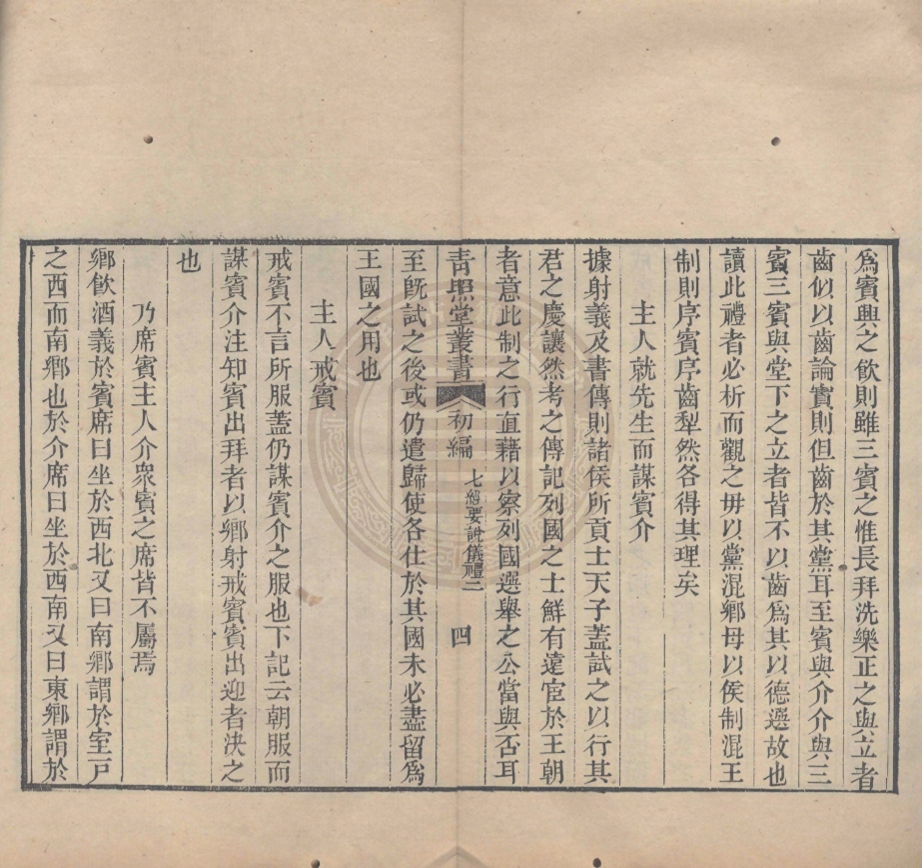 爲賓興之飲則雖三賓之惟長拜洗樂正之與立者
齒似以齒論實則但齒於其黨耳至賓與介介與三
賓三賓與堂下之立者皆不以齒爲其以德選故也
讀此禮者必析而觀之毋以黨混鄉毋以侯制混王
制則序賓序齒犁然各得其理矣
主人就先生而謀賓介
據射義及書傳則諸侯所貢士天子蓋試之以行其
君之慶讓然考之傳記列國之士鮮有遠宦於王朝
者意此制之行直藉以察列國選舉之公當與否耳
青照堂叢書 初編 七經要說儀禮二 四
至旣試之後或仍遣歸使各仕於其國未必盡留爲
王國之用也
主人戒賓
戒賓不言所服蓋仍謀賓介之服也下記云朝服而
謀賓介注知賓出拜者以鄉射戒賓賓出迎者決之
也
乃席賓主人介衆賓之席皆不屬焉
鄉飲酒義於賓席曰坐於西北又曰南鄉謂於室戸
之西而南鄉也於介席曰坐於西南又曰東鄉謂於